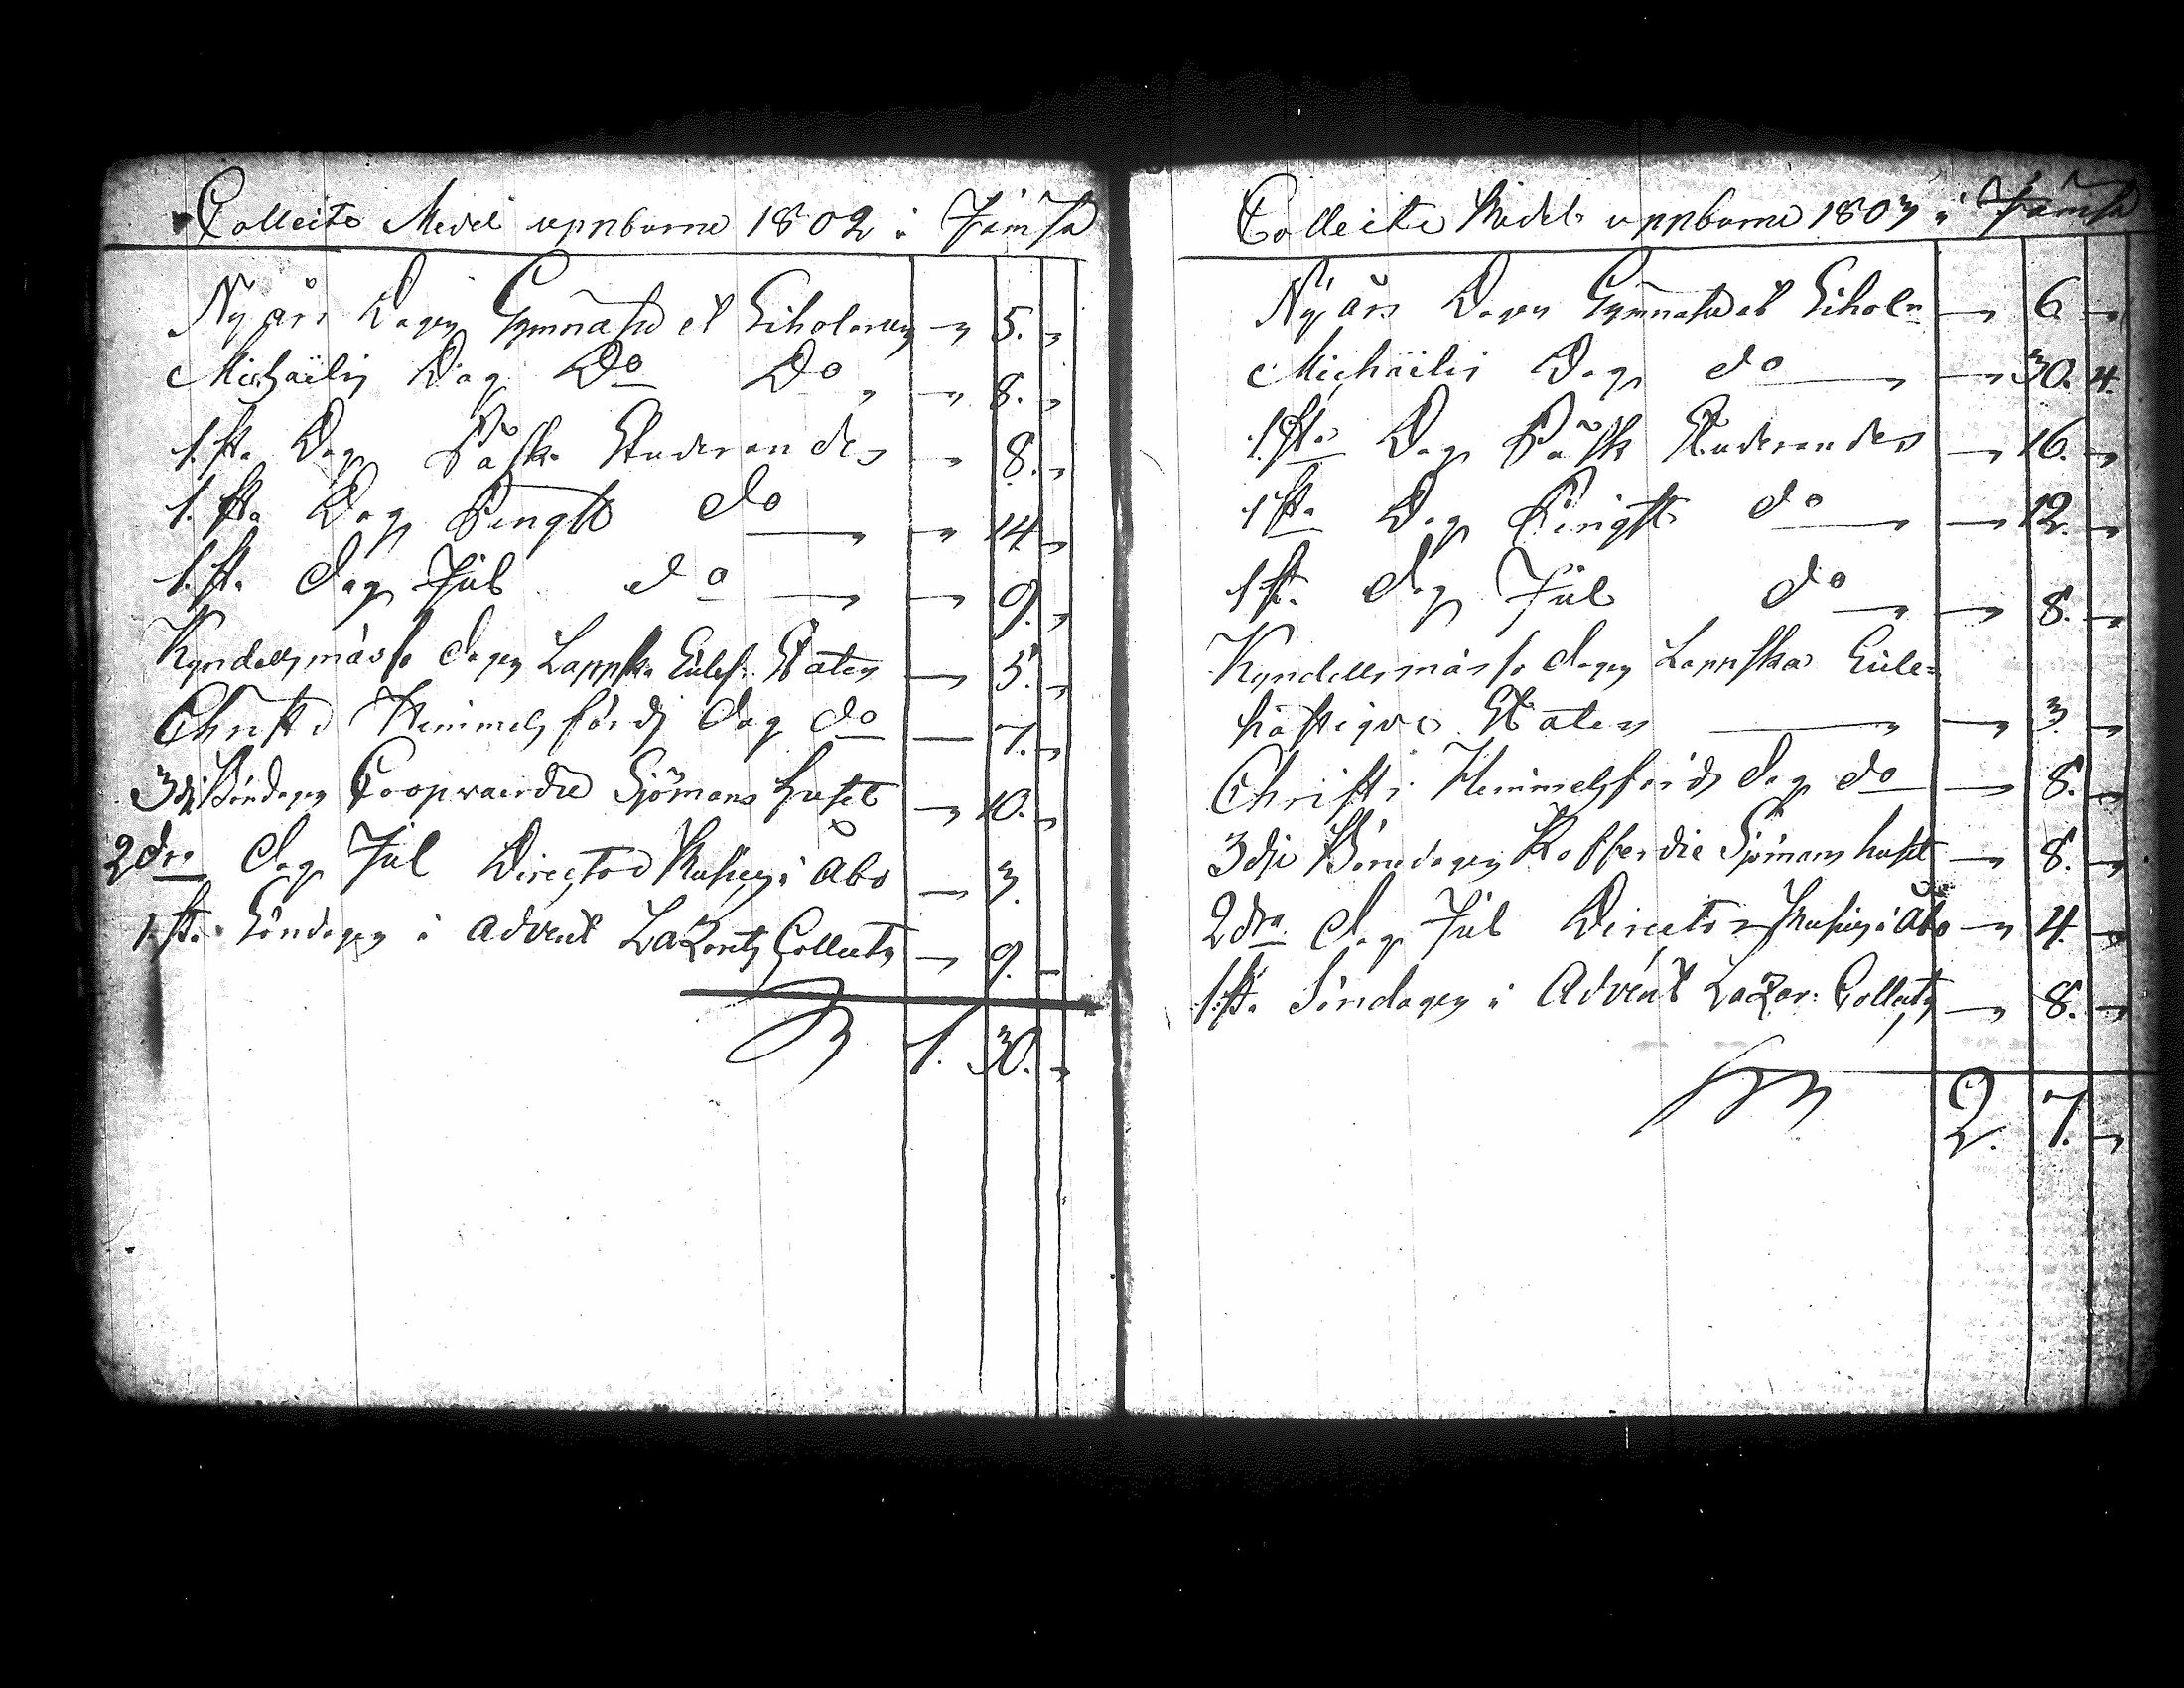 Collecte Medel uppburne 1802 i Jämsä
Nyårs Dagen Gymnasii et Scholarum " 5. "
Michaëlis Dag Do Do " " 8. "
1.sta Dag Påsk Studerandes " 8. "
1.sta Dag Pingst do — " 14 "
1.sta dag Jul do — " 9. "
Kyndelsmässo dagen Lappska Ecles. Staten — 5. "
Christi Himmelsfärds dag do — 7. "
3dje Böndagen Coopvaerdie Sjömans huset " 10. "
2dra dag Jul Director Musices i Åbo — 3.
1.sta Söndagen i Advent Lazaretts Collecten — 9. —
Sm 1. 30. "
Collecte Medel uppburne 1803 i Jämsä
Nyårs Dagen Gymnasii et Schol. — 6 "
Michaëlis Dag do — 30. 4.
1sta Dag Påsk Studerandes — 16. "
1sta Dag Pingst do — 12. "
1sta dag Jul do — 8. "
Kyndellsmässo dagen Lappska Ecle=
siastique Staten — 3. "
Christi Himmelsfärds dag do — 8. "
3dje Böndagen Kofferdie Sjömans huset — 8. "
2dra dag Jul Director Musices i Åbo — 4. "
1sta Söndagen i Advent Lazar: Collecten — 8. "
Sm 2. 7. "